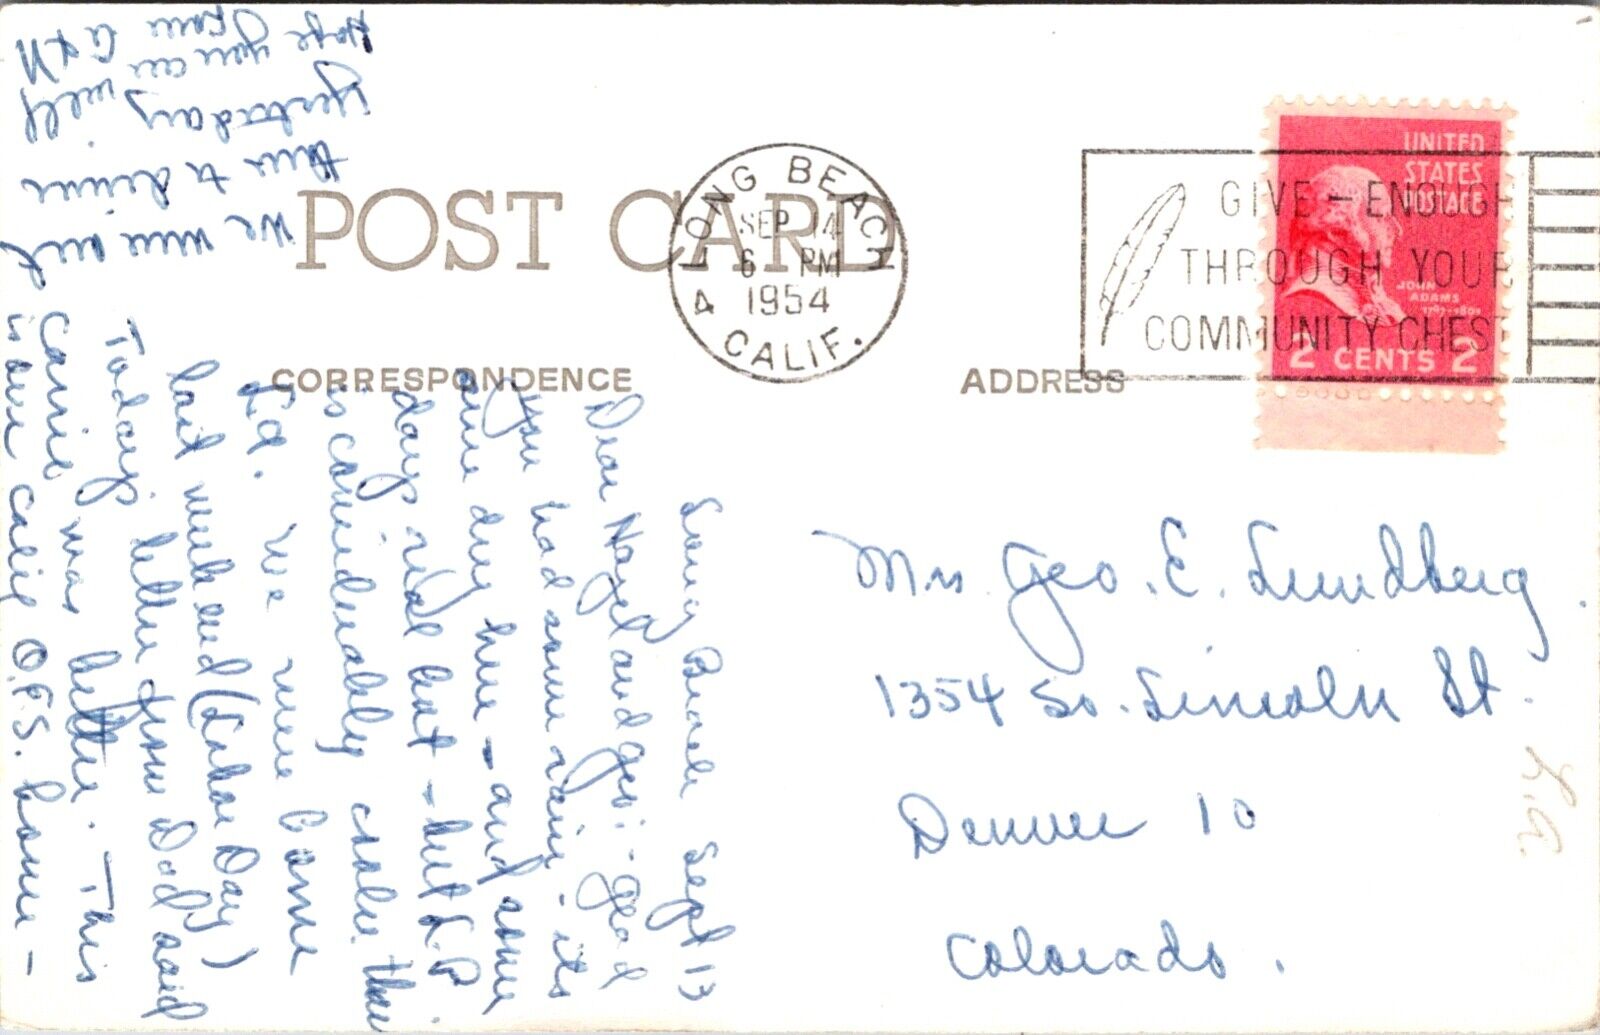 POST CARD
CORRESPONDENCE
ADDRESS
LONG BEACH
SEP 14
6 PM
1954
4 CALIF.
GIVE - ENOUGH
THROUGH YOUR
COMMUNITY CHEST
UNITED
STATES
POSTAGE
JOHN
ADAMS
1797-1801
2 CENTS 2
Long Beach Sept 13
Dear Hazel and Geo: - glad
you had some rain - its
some dry here - and some
days real hot - but L.B
is considerably cooler than
L.A. We were home
last week end (Labor Day)
Today's letter from Dad said
Carrie was better. This
is our Calif O.E.S. home -
we were out
there to dinner
yesterday
Hope you are well
Mrs. Geo. E. Lundberg.
1354 So. Lincoln St.
Denver 10
Colorado.
L.A.